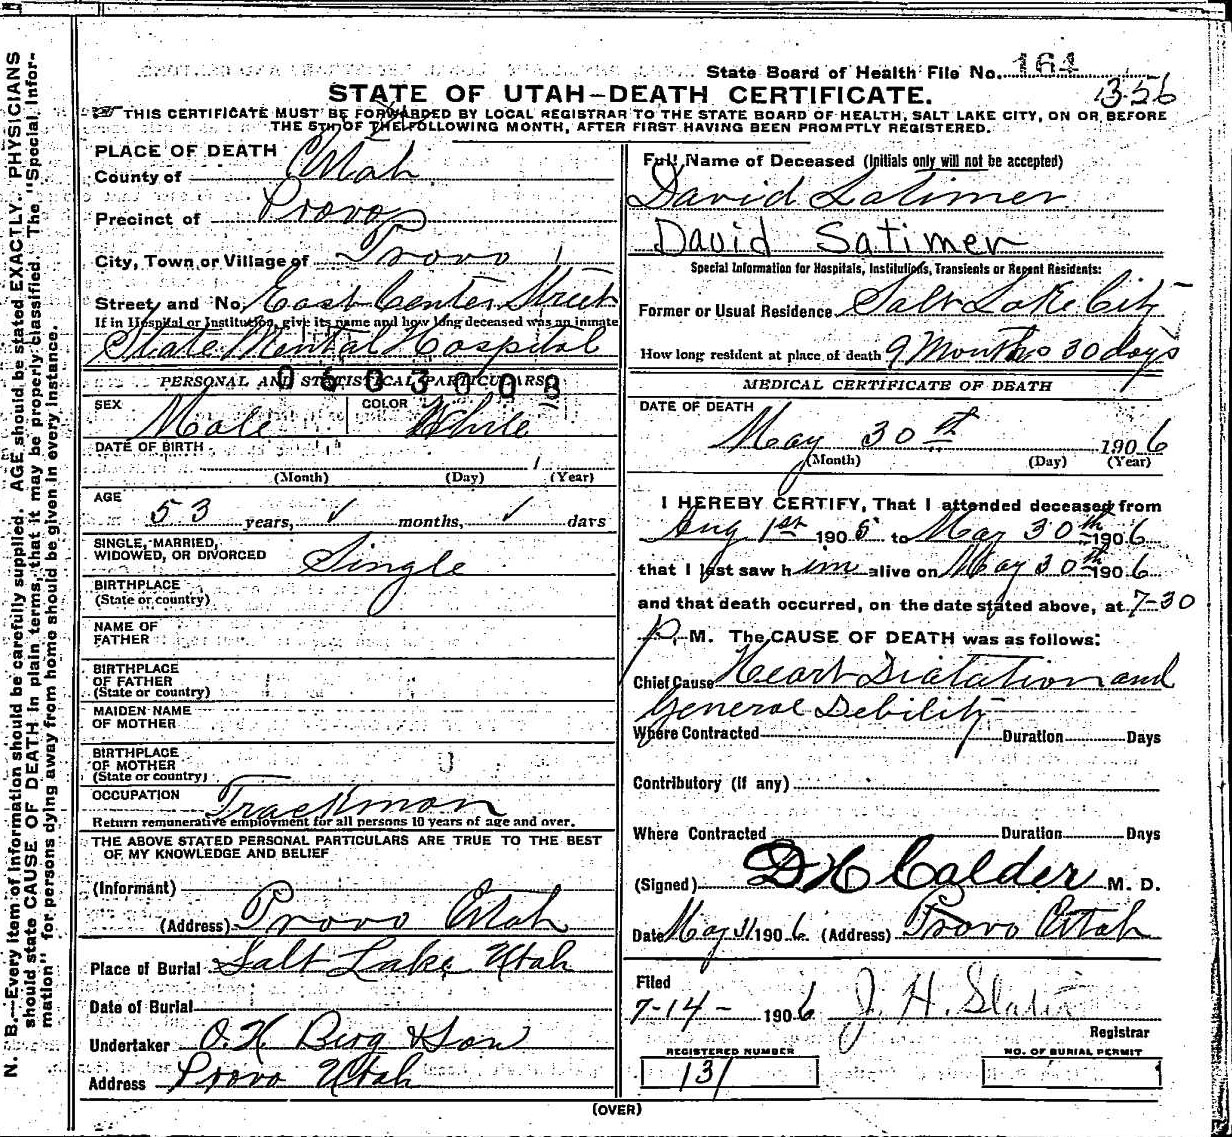 State Board of Health File No. 164
1356
STATE OF UTAH—DEATH CERTIFICATE.
THIS CERTIFICATE MUST BE FORWARDED BY LOCAL REGISTRAR TO THE STATE BOARD OF HEALTH, SALT LAKE CITY, ON OR BEFORE
THE 5TH OF THE FOLLOWING MONTH, AFTER FIRST HAVING BEEN PROMPTLY REGISTERED.
N. B.—Every item of information should be carefully supplied. AGE should be stated EXACTLY. PHYSICIANS
should state CAUSE OF DEATH in plain terms, that it may be properly classified. The "Special Infor-
mation" for persons dying away from home should be given in every instance.
PLACE OF DEATH
County of Utah
Precinct of Provo
City, Town or Village of Provo
Street and No. East Center Street
If in Hospital or Institution, give its name and how long deceased was an inmate
State Mental Hospital
PERSONAL AND STATISTICAL PARTICULARS
0603008
SEX Male COLOR White
DATE OF BIRTH
1
(Month) (Day) (Year)
AGE
53 years, ✓ months, ✓ days
SINGLE, MARRIED,
WIDOWED, OR DIVORCED Single
BIRTHPLACE
(State or country)
NAME OF
FATHER
BIRTHPLACE
OF FATHER
(State or country)
MAIDEN NAME
OF MOTHER
BIRTHPLACE
OF MOTHER
(State or country)
OCCUPATION Trackman
Return remunerative employment for all persons 10 years of age and over.
THE ABOVE STATED PERSONAL PARTICULARS ARE TRUE TO THE BEST
OF MY KNOWLEDGE AND BELIEF
(Informant)
(Address) Provo Utah
Place of Burial Salt Lake, Utah
Date of Burial
Undertaker O. H Berg & Son
Address Provo Utah
Full Name of Deceased (Initials only will not be accepted)
David Latimer
David Satimer
Special Information for Hospitals, Institutions, Transients or Recent Residents:
Former or Usual Residence Salt Lake City
How long resident at place of death 9 Months 30 days
MEDICAL CERTIFICATE OF DEATH
DATE OF DEATH
May 30th 1906
(Month) (Day) (Year)
I HEREBY CERTIFY, That I attended deceased from
Aug 1st 1905 to May 30th 1906
that I last saw him alive on May 30th 1906
and that death occurred, on the date stated above, at 7-30
P. M. The CAUSE OF DEATH was as follows:
Chief Cause Heart Dilatation and
General Debility
Where Contracted Duration Days
Contributory (if any)
Where Contracted Duration Days
(Signed) D H Calder M. D.
Date May 31 1906. (Address) Provo Utah
Filed
7-14- 1906 J. H. Slater
Registrar
REGISTERED NUMBER
131
NO. OF BURIAL PERMIT
(OVER)